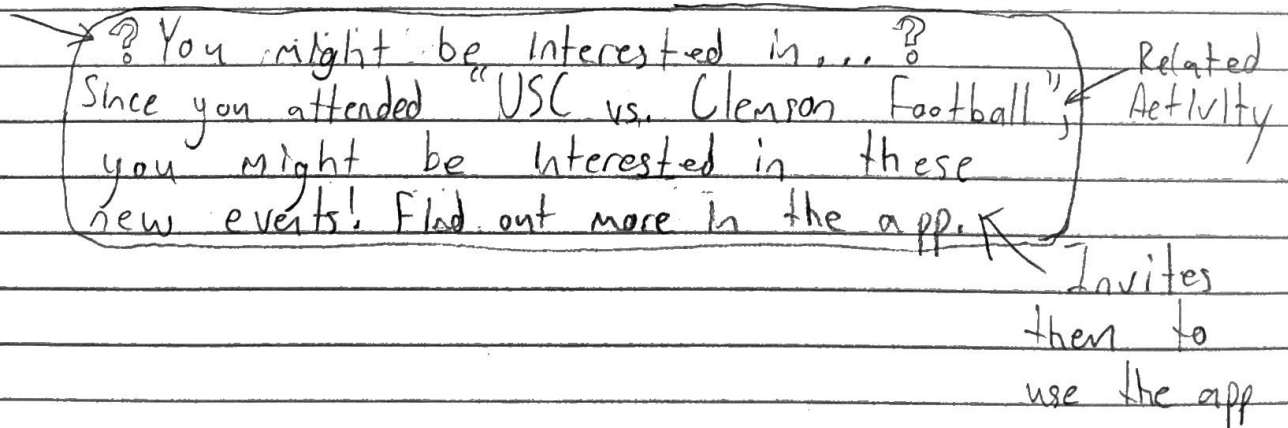 ? You might be Interested in... ?
Since you attended "USC vs. Clemson Football",
you might be Interested in these
new events! Find out more in the app.
Related
Activity
Invites
them to
use the app